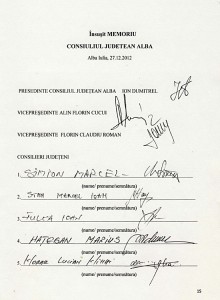 Însușit MEMORIU
CONSILIUL JUDEȚEAN ALBA
Alba Iulia, 27.12.2012
PREȘEDINTE CONSILIUL JUDEȚEAN ALBA ION DUMITREL
VICEPREȘEDINTE ALIN FLORIN CUCUI
VICEPREȘEDINTE FLORIN CLAUDIU ROMAN
CONSILIERI JUDEȚENI
1. SIMION MARCEL
(nume/ prenume/semnătura)
2. STAN MARCEL IOAN
(nume/ prenume/semnătura)
3. FULEA IOAN
(nume/ prenume/semnătura)
4. HAȚEGAN MARIUS
(nume/ prenume/semnătura)
5. Lucian
(nume/ prenume/semnătura)
25